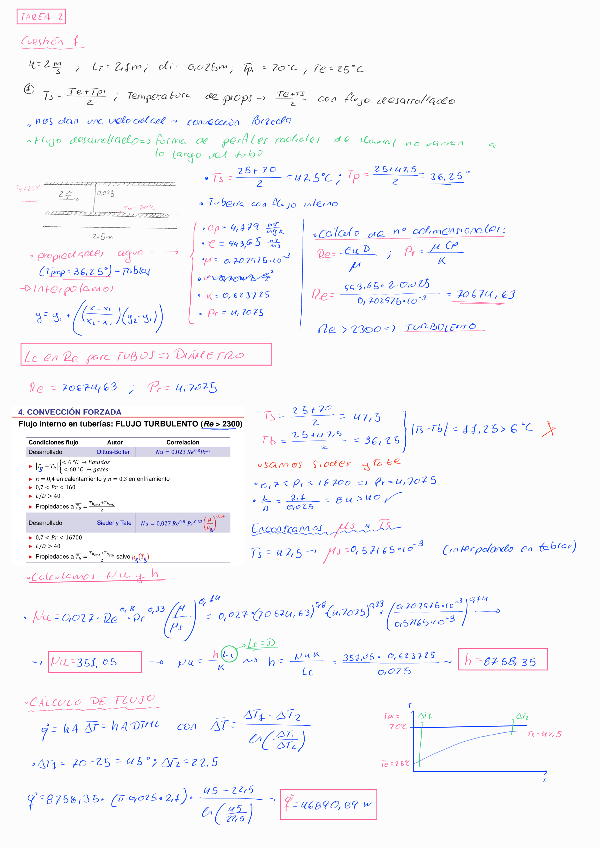 TAREA 2
Cuestión 1
u = 2 m/s ; LT = 2,1m ; di = 0,025m , Tpi = 70°C , Te = 25°C
① Ts = (Te+Tpi)/2 ; Temperatura de props → (Te+Ts)/2 con flujo desarrollado
nos dan una velocidad → convección forzada
Flujo desarrollado => forma de perfiles radiales de no varían a
lo largo del tubo
• Ts = (25+70)/2 = 47,5°C ; Tp = (25+47,5)/2 = 36,25°
• Tubería con flujo interno
2 m/s
0,025
• propiedades agua →
(Tprop = 36,25°) - Tablas
→ Interpolamos
y = y1 + ((x-x1)/(x2-x1))(y2-y1)
• cp = 4,179
• ρ = 993,65
• μ = 0,702976·10⁻³
• κ = 0,623725
• Pr = 4,7075
• Cálculo de nº adimensionales:
Re = ρuD/μ ; Pr = μCP/K
Re = (993,65·2·0,025)/(0,702976·10⁻³) = 70674,63
Re > 2300 => TURBULENTO
Lc en Re para TUBOS => DIÁMETRO
Re = 70674,63 ; Pr = 4,7075
4. CONVECCIÓN FORZADA
Flujo interno en tuberías: FLUJO TURBULENTO (Re > 2300)
Condiciones flujo Autor Correlación
Desarrollado Dittus-Bölter Nu = 0,023 Re^0,8 Pr^n
< 6 °C → líquidos
< 60 °C → gases
n = 0,4 en calentamiento y n = 0,3 en enfriamiento
0,7 < Pr < 160
L/D > 40
Desarrollado Sieder y Tate Nu = 0,027 Re^0,8 Pr^0,33 (μ/μs)^0,14
0,7 < Pr < 16700
L/D > 40
Ts = (25+70)/2 = 47,5
Tb = (25+47,5)/2 = 36,25
|Ts-Tb| = 11,25 > 6°C ✗
usamos Sieder y Tate
• 0,7 < Pr < 16700 → Pr = 4,7075
• L/D = 2,1/0,025 = 84 > 40 ✓
Encontramos μs a Ts
Ts = 47,5 → μs = 0,57165·10⁻³ (interpolando en tablas)
• Calculamos Nu y h
• Nu = 0,027·Re^0,8·Pr^0,33 (μ/μs)^0,14 = 0,027·(70674,63)^0,8·(4,7075)^0,33·((0,702976·10⁻³)/(0,57165·10⁻³))^0,14 →
→ Nu = 351,05 → Nu = hLc/K → h = NuK/Lc = (351,05·0,623725)/0,025 → h = 8758,35
Lc = D
• CÁLCULO DE FLUJO
q̇ = hA ΔT̄ = hA DTML con ΔT̄ = (ΔT1 - ΔT2)/ln(ΔT1/ΔT2)
• ΔT1 = 70-25 = 45° ; ΔT2 = 22,5
q̇ = 8758,35·(π·0,025·2,1)·(45-22,5)/ln(45/22,5) → q̇ = 46890,89 W
70°C
ΔT1
ΔT2
Ts = 47,5
Te = 25°C